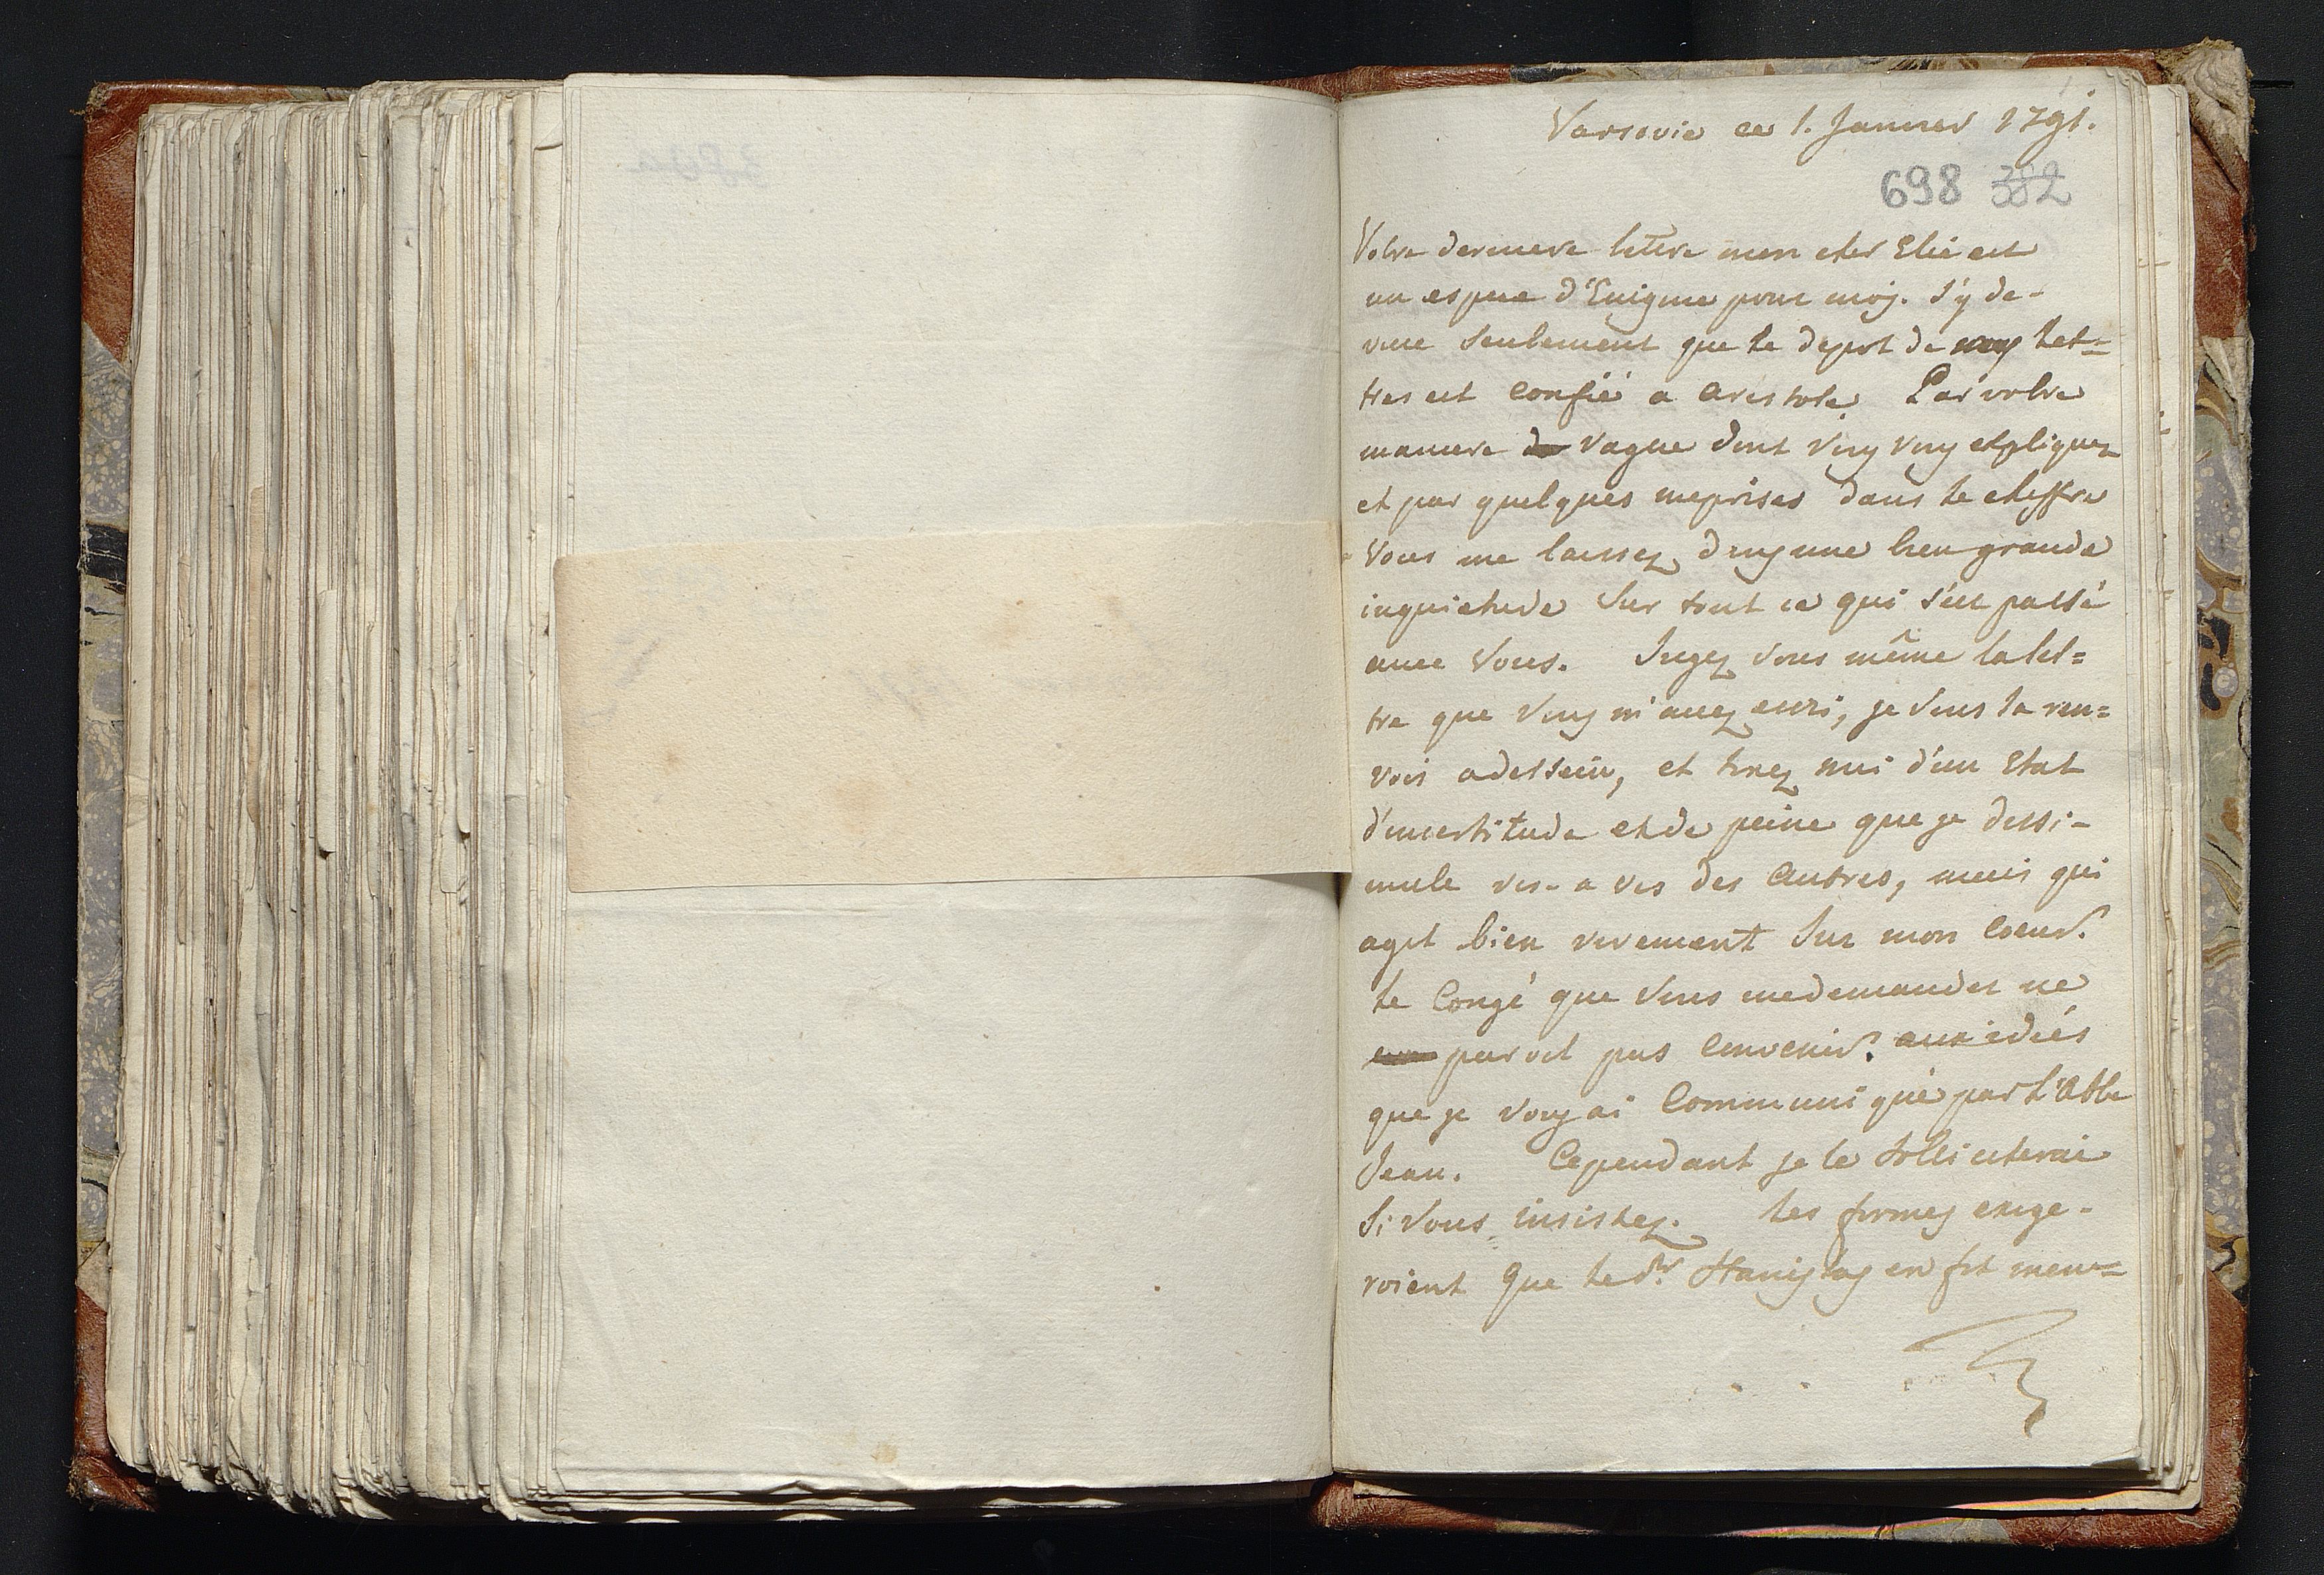 Varsovie ce 1. Janvier 1791.
698 382
Votre derniere lettre mon cher Elie est
un espece d'Enigme pour moj. J'y de-
vine seulement que le depot de vos let=
tres est confié a Aristote. Par votre
maniere de vague dont Vous Vous expliquez
et par quelques meprises dans le chiffre
Vous me laissez dans une bien grande
inquietude sur tout ce qui s'est passé
avec Vous. Jugez Vous même la let=
tre que Vous m'avez ecrit, je Vous la ren=
vois a dessein, et tirez moi d'un Etat
d'incertitude et de peine que je dissi-
mule vis-a vis des Autres, mais qui
agit bien vivement sur mon Coeur.
Le Congé que Vous me demandez ne
paroit pas Convenir aux idées
que je Vous ai Communiqué par l'Abbe
Jean. Cependant je le solliciterai
si Vous insistez. Les formes exige-
roient que le Sr en fit mem=